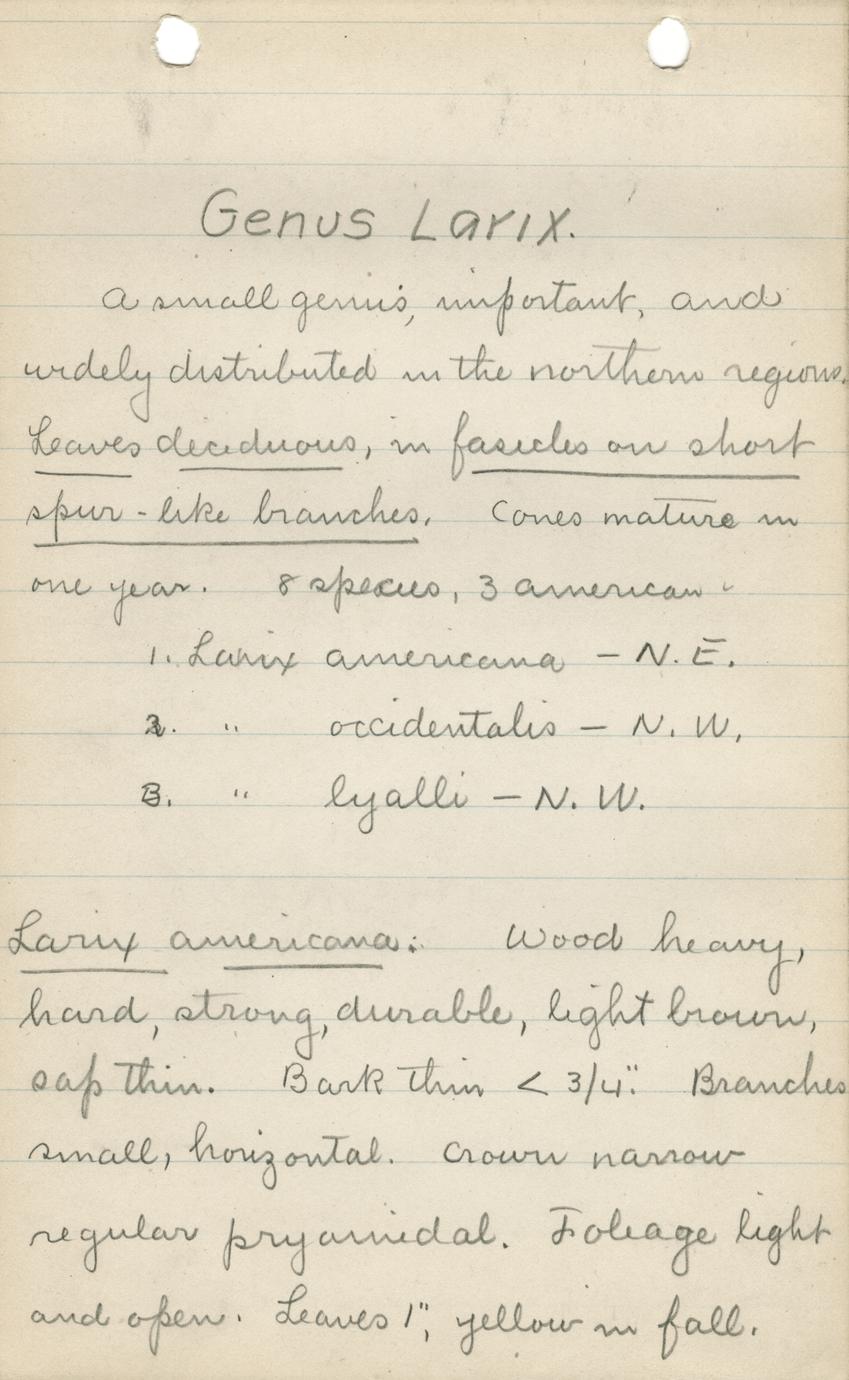 Genus Larix.
A small genus, important, and
widely distributed in the northern regions.
Leaves deciduous, in fasicles on short
spur-like branches. Cones mature in
one year. 8 species, 3 american -
1. Larix americana - N.E.
2. " occidentalis - N.W.
3. " lyalli - N.W.
Larix americana: Wood heavy,
hard, strong, durable, light brown,
sap thin. Bark thin < 3/4". Branches
small, horizontal. Crown narrow
regular pryamidal. Foleage light
and open. Leaves 1", yellow in fall.